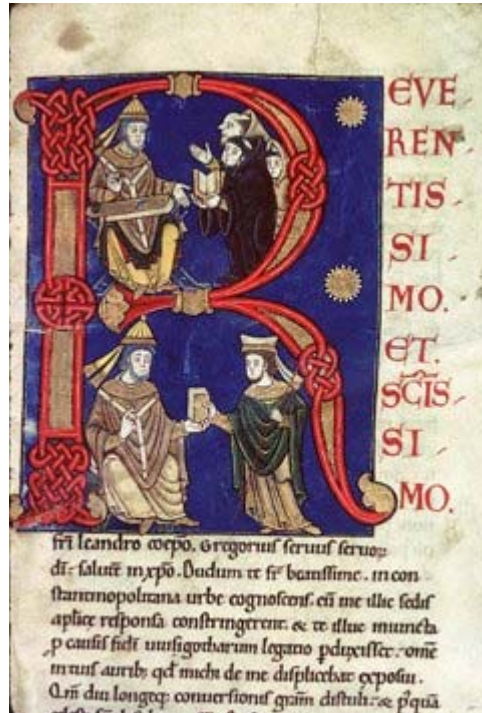 R
EVE
REN
TIS
SI
MO.
ET.
SC̄IS
SI
MO.
fr̄i leandro coepo. Gregorius seruus seruoꝝ
dī: salutē in xp̄o. Dudum te fr̄ beatissime. in con
stantinopolitana urbe cognoscens. cū me illic sedis
aplice responsa constringerent. & te illuc iniuncta
ꝑ causis fidei uuisigothorum legatio ꝑduxisset. omē
in tuis aurib; qd̄ michi de me displicebat exposui.
Qm̄ diu longeq; conuersionis gram̄ distuli: & pꝰqua